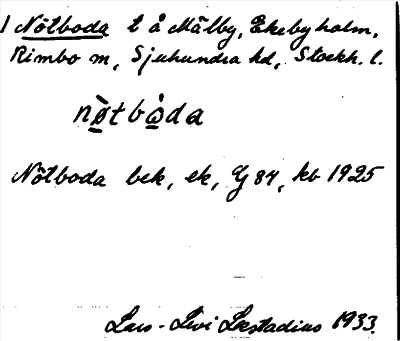 1 Nötboda t å Mälby, Ekebyholm,
Rimbo sn, Sjuhundra hd, Stockh. l.
nø̀tbo̊da
Nötboda bek, ek, G 84, kb 1925
Lars-Levi Læstadius 1933.